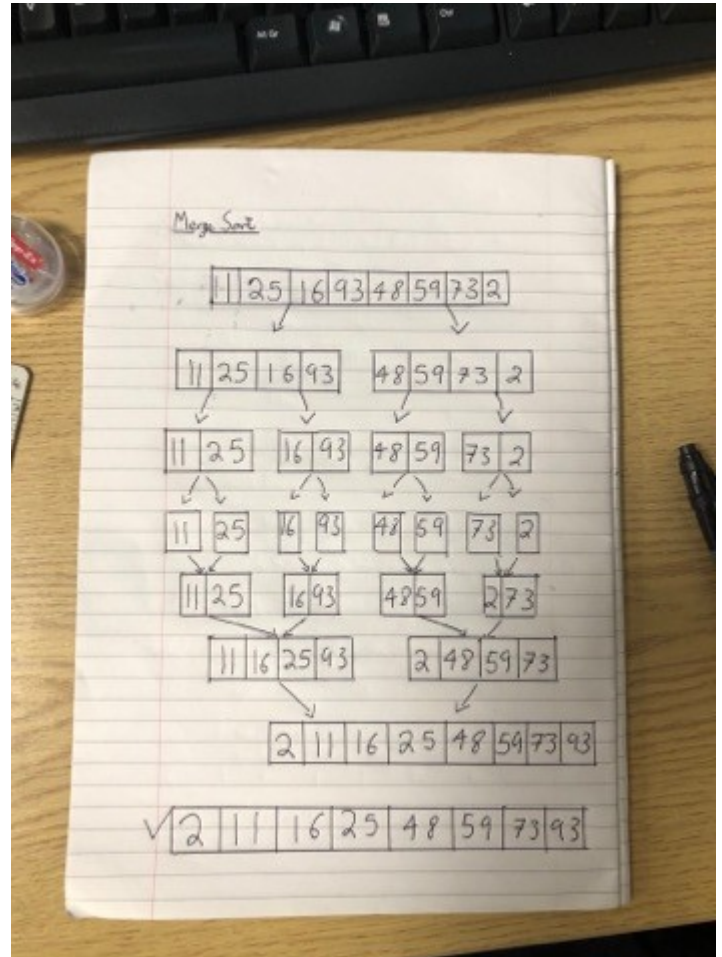 Alt Gr
Ctrl
Merge Sort
11 25 16 93 48 59 73 2
11 25 16 93 48 59 73 2
11 25 16 93 48 59 73 2
11 25 16 93 48 59 73 2
11 25 16 93 48 59 2 73
11 16 25 93 2 48 59 73
2 11 16 25 48 59 73 93
2 11 16 25 48 59 73 93